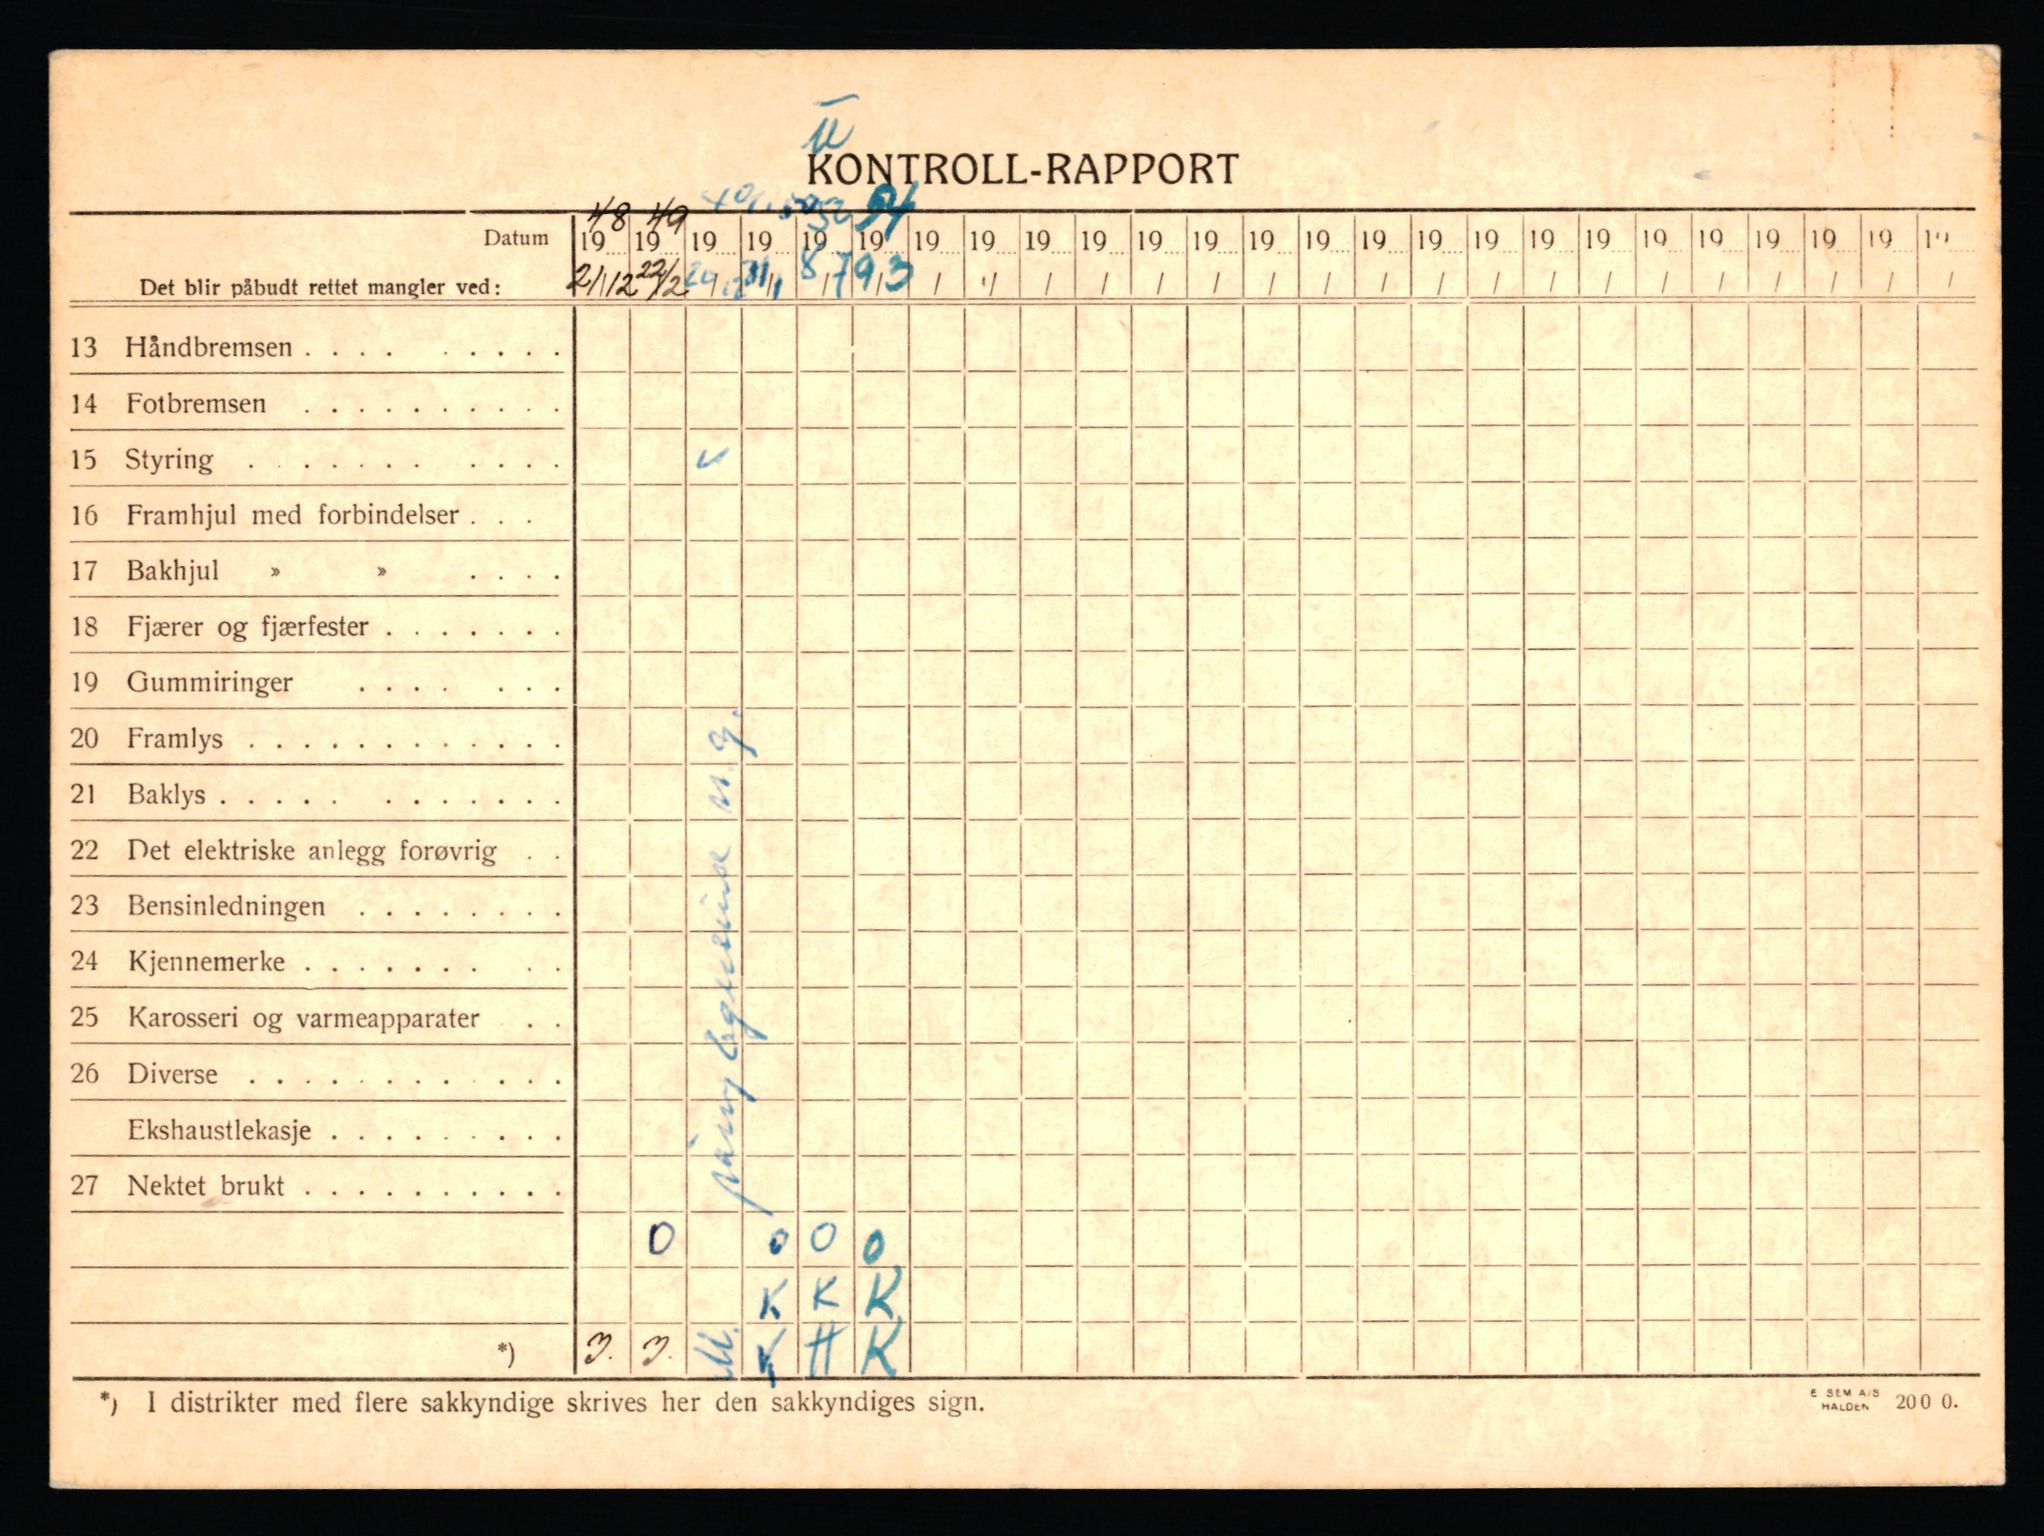 II
KONTROLL-RAPPORT
48 49 50 52 54
Datum 19 19 19 19 19 19 19 19 19 19 19 19 19 19 19 19 19 19 19 19 19 19 19 19 19
Det blir påbudt rettet mangler ved: 21/12 22/2 31/1 8/7 9/3 / / / / / / / / / / / / / / / / / / /
13 Håndbremsen . . . . . . . . .
14 Fotbremsen . . . . . . . . . .
15 Styring . . . . . . . . . . . v
16 Framhjul med forbindelser . . .
17 Bakhjul » » . . . .
18 Fjærer og fjærfester . . . . . . .
19 Gummiringer . . . . . . .
20 Framlys . . . . . . . . . . . .
21 Baklys . . . . . . . . . . . .
22 Det elektriske anlegg forøvrig . .
23 Bensinledningen . . . . . . . .
24 Kjennemerke . . . . . . . . .
25 Karosseri og varmeapparater . .
26 Diverse . . . . . . . . . . . .
Ekshaustlekasje . . . . . . . . .
27 Nektet brukt . . . . . . . . . .
0 0 0 0
K K K
*) 3. 3. M. K H K
*) I distrikter med flere sakkyndige skrives her den sakkyndiges sign.
E SEM A/S
HALDEN 200 0.